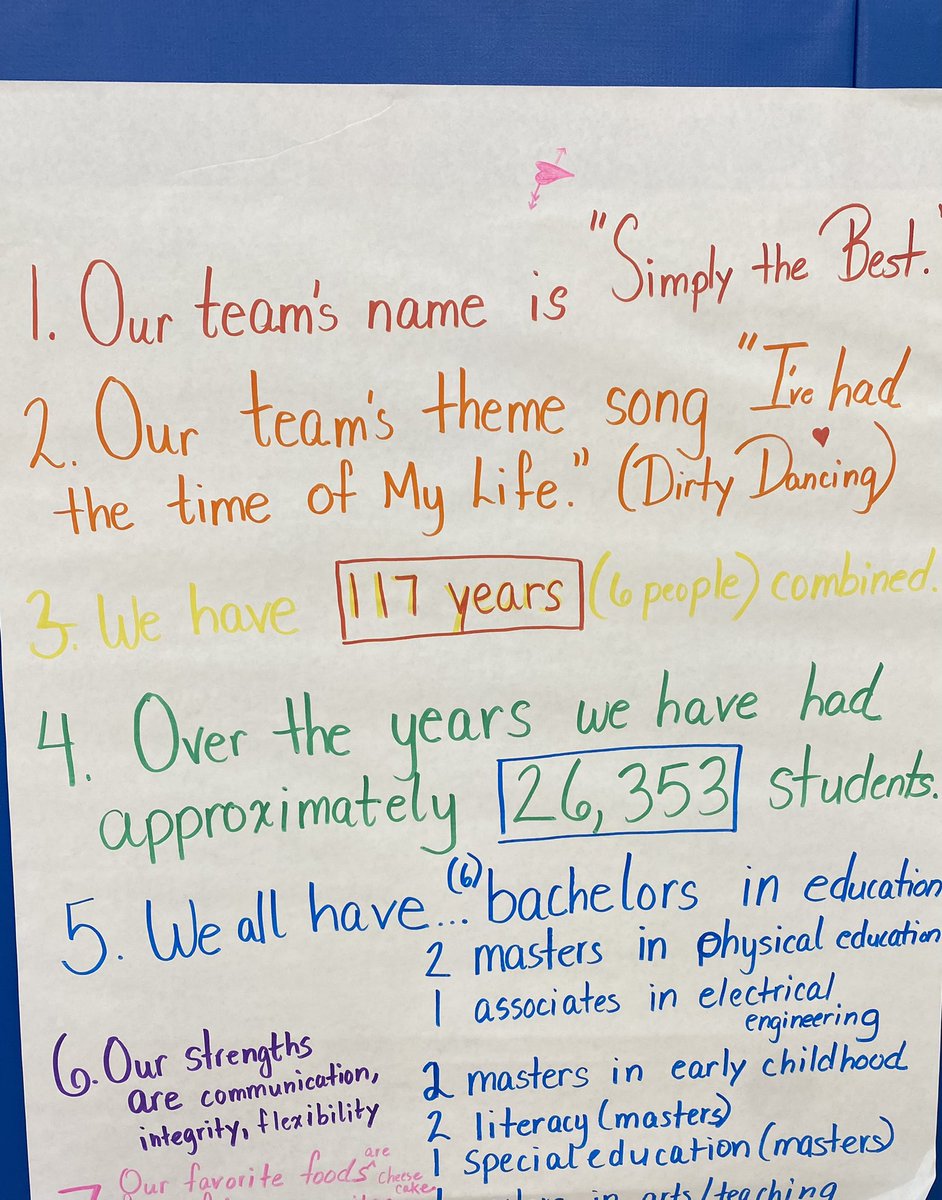 1. Our team's name is "Simply the Best."
2. Our team's theme song "I've had
the time of My Life." (Dirty Dancing)
3. We have 117 years (6 people) combined.
4. Over the years we have had
approximately 26,353 students.
5. We all have... (6) bachelors in education
2 masters in physical education
1 associates in electrical
engineering
2 masters in early childhood
2 literacy (masters)
1 special education (masters)
in arts/teaching
6. Our strengths
are communication,
integrity, flexibility
7 Our favorite foods are cheese
cake